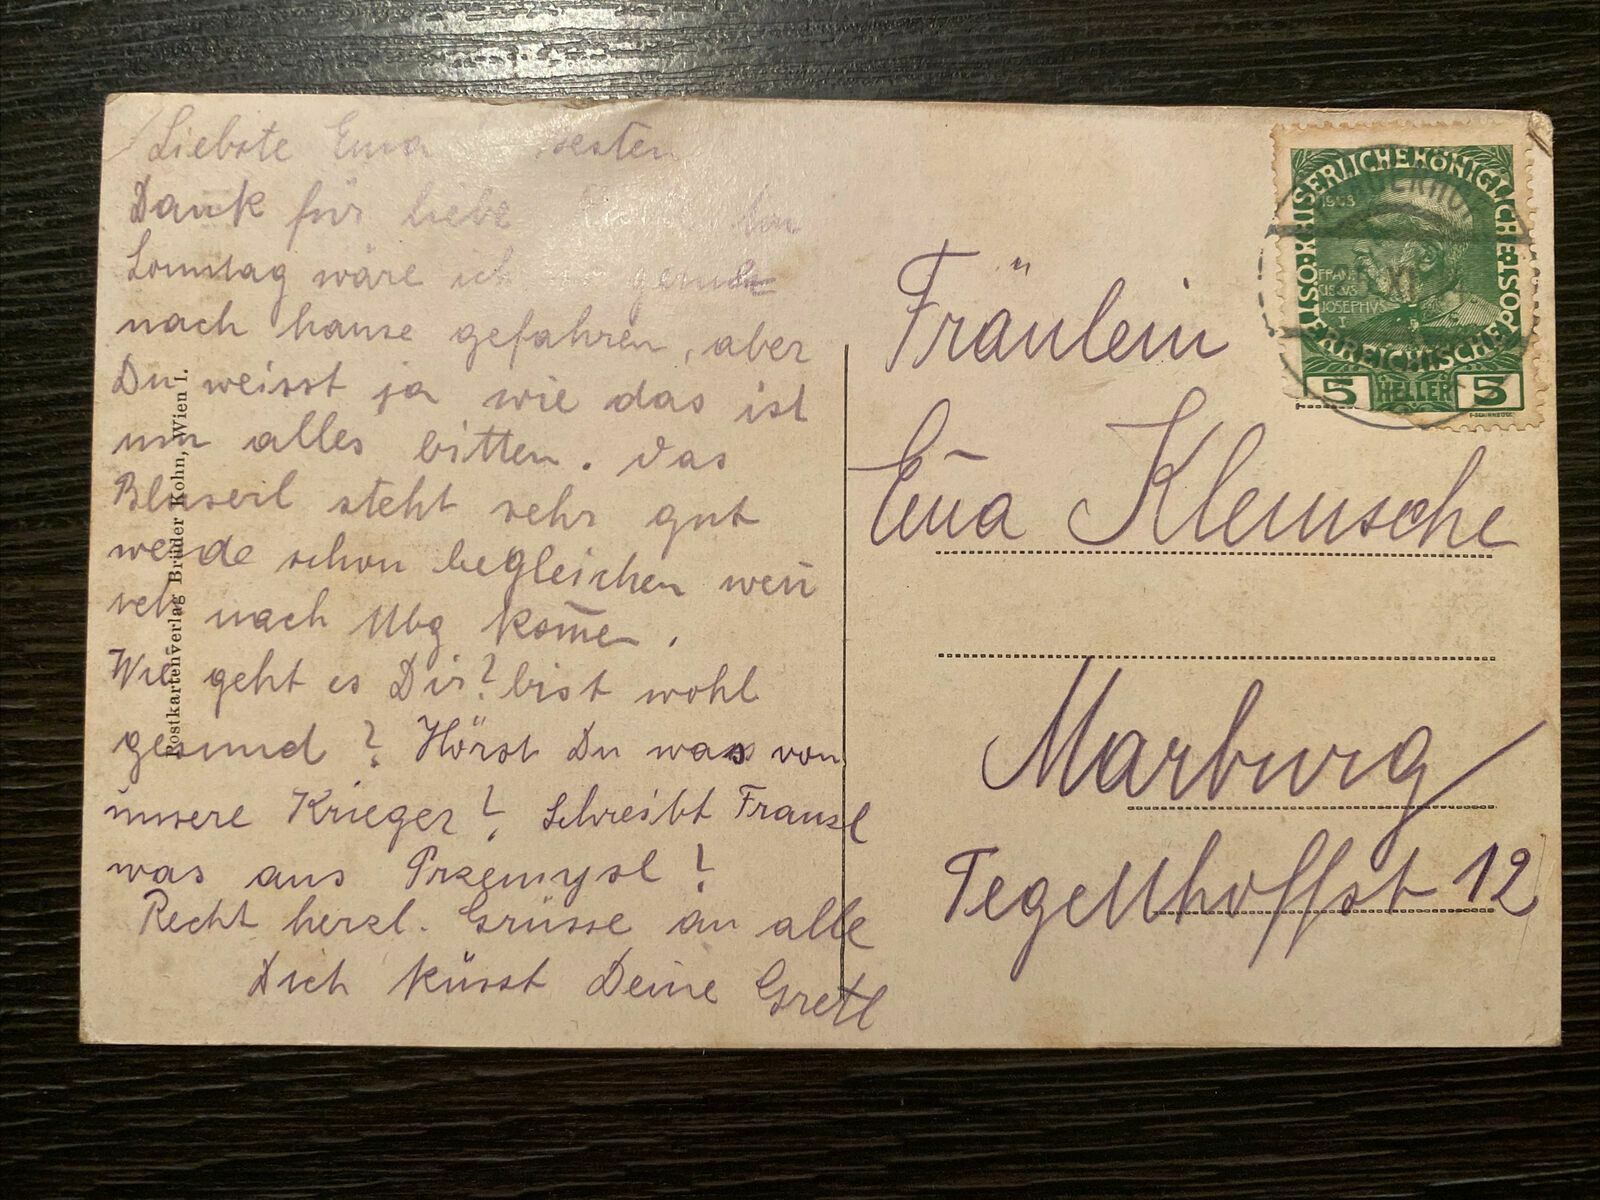 Liebste Ema besten
Dank für liebe
Sonntag wäre ich so gerne
nach hause gefahren, aber
Du weisst ja wie das ist
um alles bitten. das
steht sehr gut
werde schon begleichen weñ
ich nach Mbg kom̅en.
Wie geht es Dir? bist wohl
gesund? Hörst Du was von
unsere Krieger? Schreibt Franzl
was aus Przemysl?
Recht herzl. Grüsse an alle
Dich küsst Deine Gretl
Postkartenverlag Brüder Kohn, Wien I.
KAISERLICHEKÖNIGLICHE
ÖSTERREICHISCHE POST
1908
FRAN
CISCVS
JOSEPHVS
I
5 HELLER 5
XI
Fräulein
Em̅a Klemsche
Marburg
Tegetthoffst 12